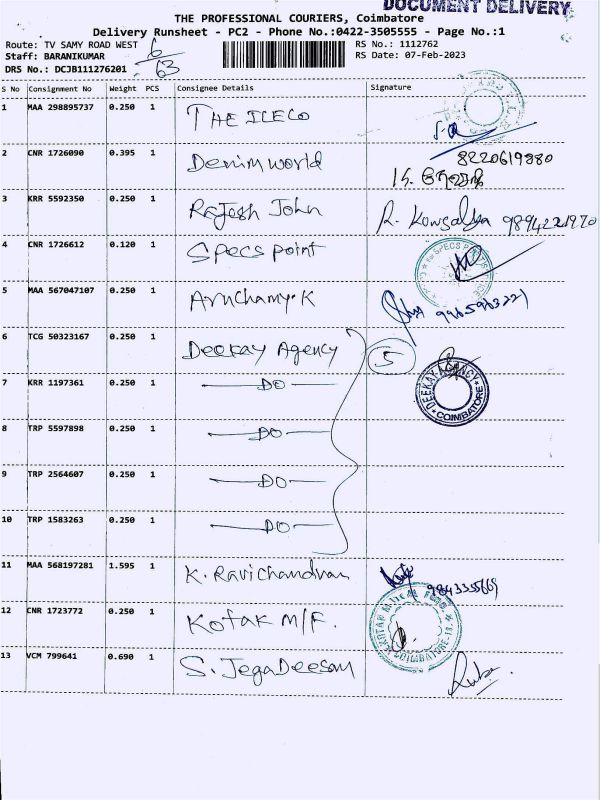 DOCUMENT DELIVERY
THE PROFESSIONAL COURIERS, Coimbatore
Delivery Runsheet - PC2 - Phone No.:0422-3505555 - Page No.:1
Route: TV SAMY ROAD WEST RS No.: 1112762
Staff: BARANIKUMAR 6/63 RS Date: 07-Feb-2023
DRS No.: DCJB111276201
S No Consignment No Weight PCS Consignee Details Signature
1 MAA 298895737 0.250 1 THE ILECO
2 CNR 1726090 0.395 1 Denim world 8220619880
3 KRR 5592350 0.250 1 Rajesh John R. Kowsalya
4 CNR 1726612 0.120 1 Specs point SPECS
5 MAA 567047107 0.250 1 Aruchamy. K
6 TCG 50323167 0.250 1 Deekay Agency 5
7 KRR 1197361 0.250 1 DO DEEKAY AGENCY COIMBATORE
8 TRP 5597898 0.250 1 DO
9 TRP 2564607 0.250 1 DO
10 TRP 1583263 0.250 1 DO
11 MAA 568197281 1.595 1 K. Ravichandran
12 CNR 1723772 0.250 1 Kotak M/F. KOTAK MUTUAL FUND COIMBATORE
13 VCM 799641 0.690 1 S. JegaDeesan